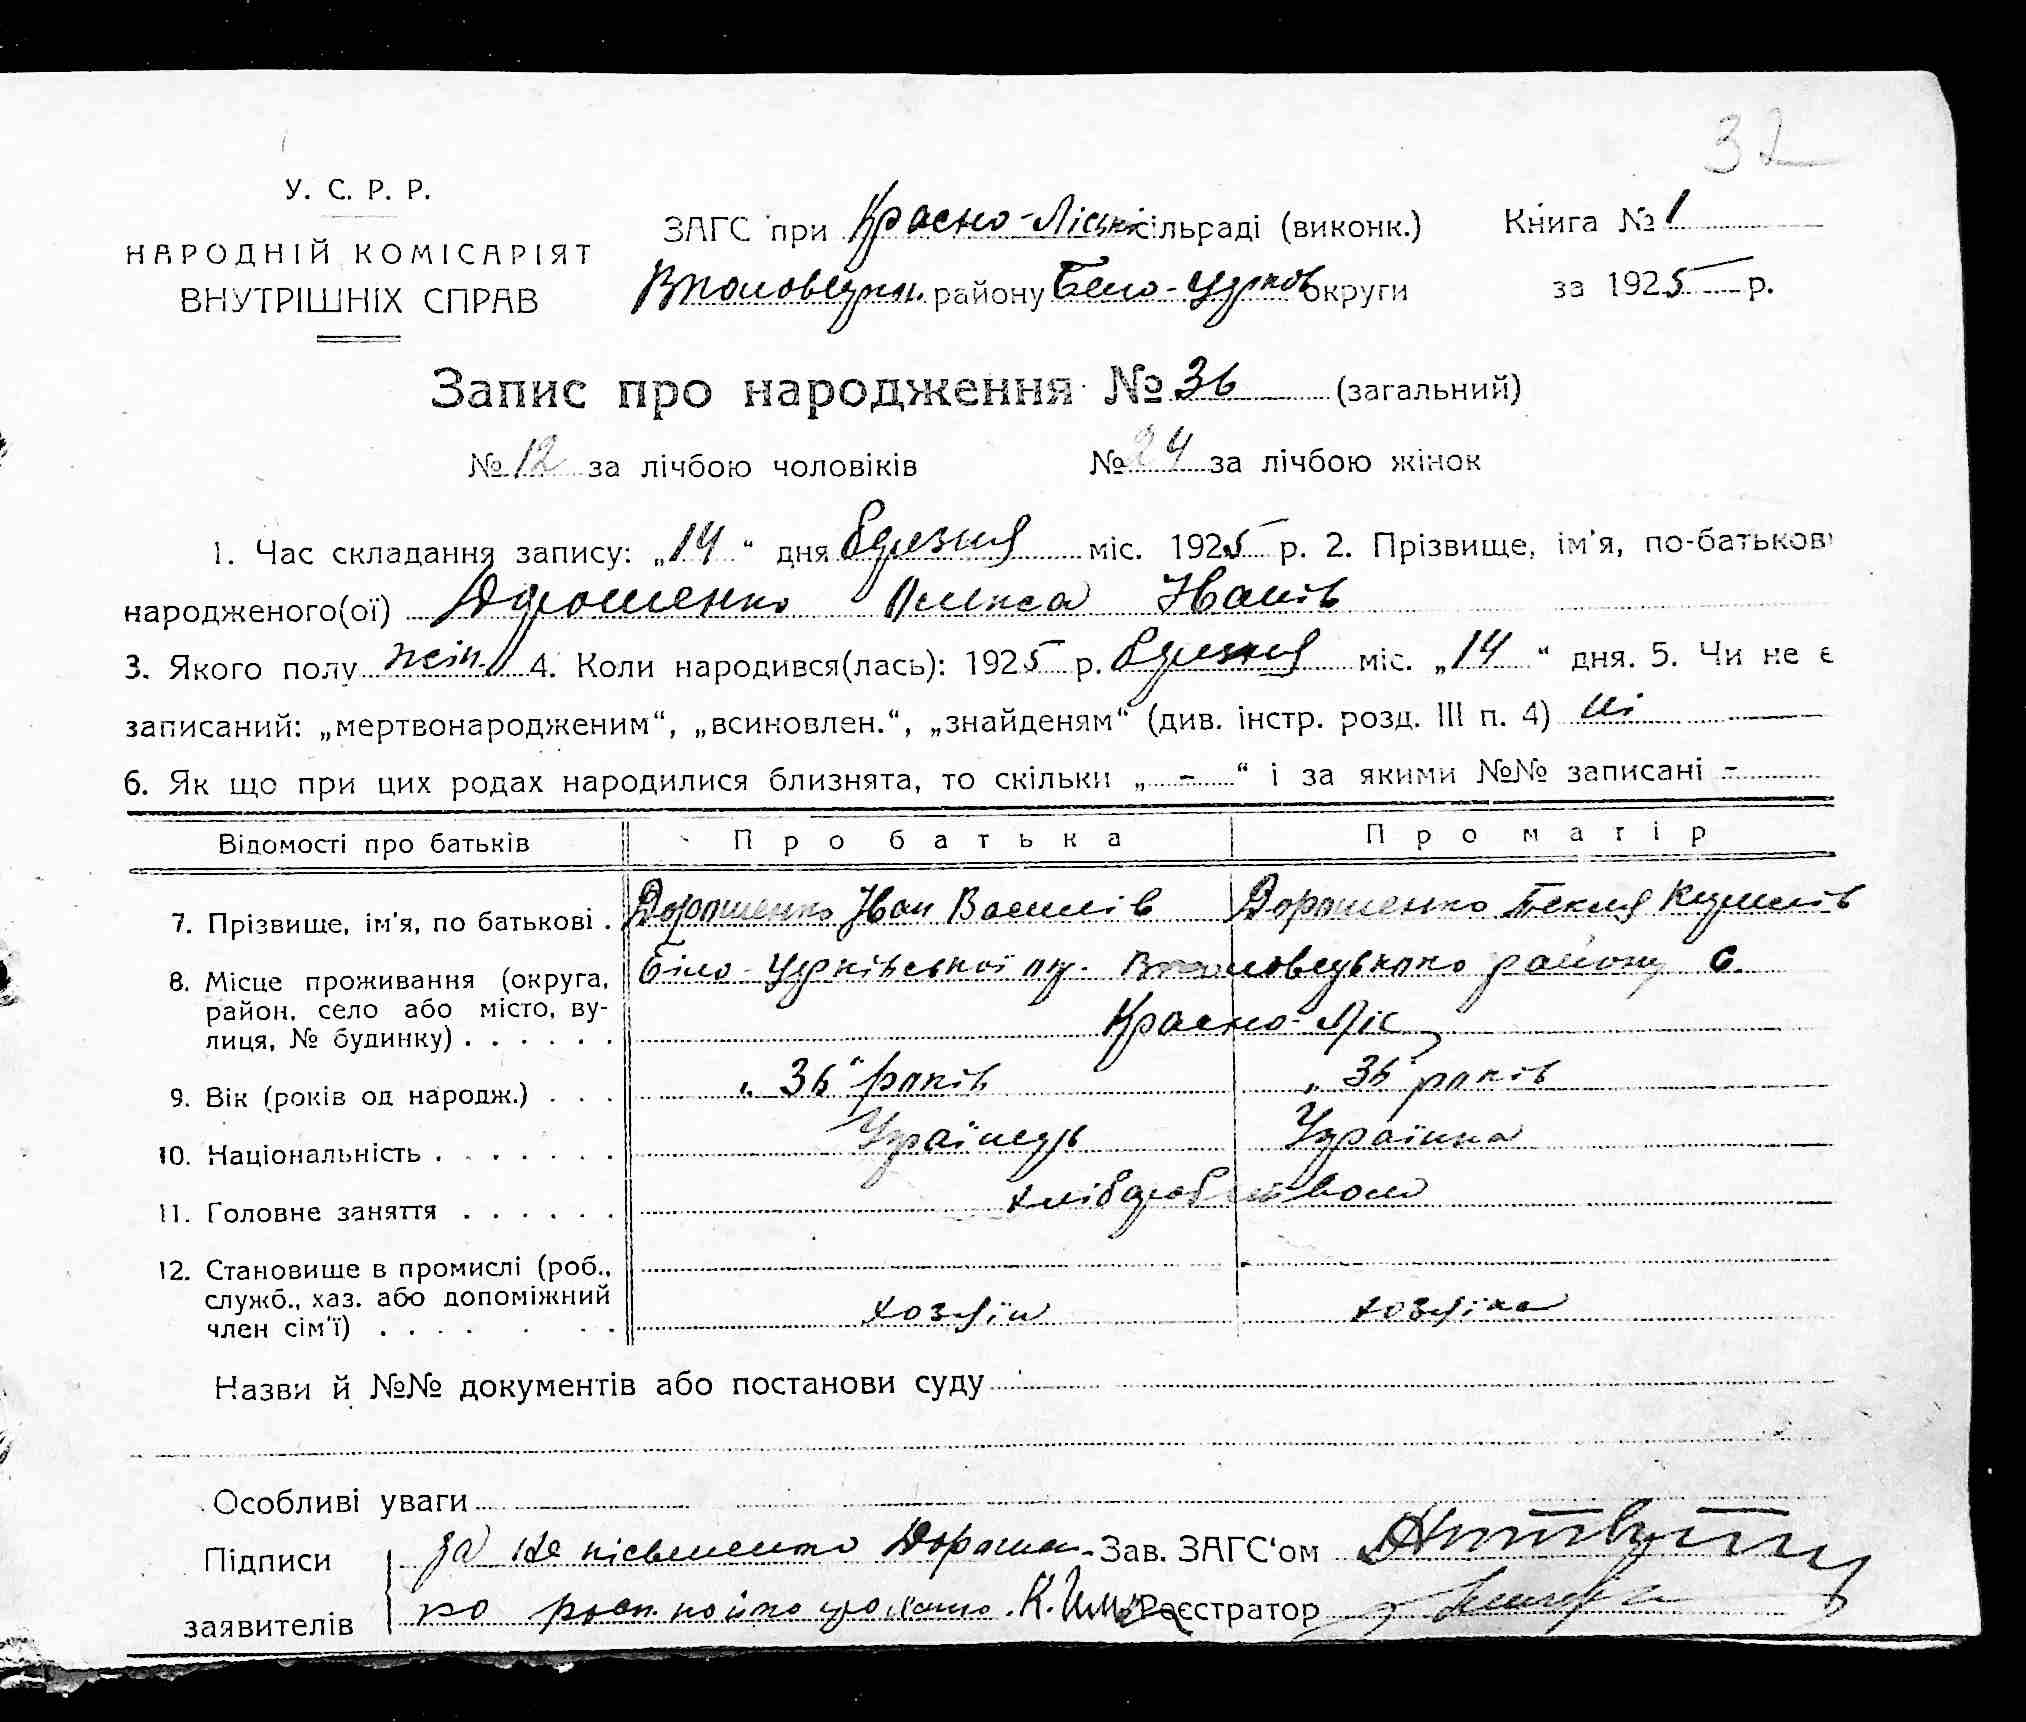 32
У. С. Р. Р.
НАРОДНІЙ КОМІСАРІЯТ
ВНУТРІШНІХ СПРАВ
ЗАГС при Красно-Ліській сільраді (виконк.)
району Біло-Церков округи
Книга № 1
за 1925 р.
Запис про народження № 36 (загальний)
№ 12 за лічбою чоловіків № 24 за лічбою жінок
1. Час складання запису: „14“ дня березня міс. 1925 р. 2. Прізвище, ім'я, по-батькові
народженого(ої) Дорошенко Олекса Іванів
3. Якого полу жін. 4. Коли народився(лась): 1925 р. березня міс. „14“ дня. 5. Чи не є
записаний: „мертвонародженим“, „всиновлен.“, „знайденям“ (див. інстр. розд. III п. 4) ні
6. Як що при цих родах народилися близнята, то скільки „ - “ і за якими №№ записані -
Відомості про батьків Про батька Про матір
7. Прізвище, ім'я, по батькові . Дорошенко Іван Василів Дорошенко Текля
8. Місце проживання (округа, Біло-Церківської ок. району с.
район, село або місто, ву-
лиця, № будинку) . . . . . . Красно-Ліс
9. Вік (років од народж.) . . . „36“ років „36“ років
10. Національність . . . . . . . Українець Українка
11. Головне заняття . . . . . . хліборобством
12. Становище в промислі (роб.,
служб., хаз. або допоміжний
член сім'ї) . . . . . . хозяїн хозяїка
Назви й №№ документів або постанови суду
Особливі уваги
Підписи за не письменного Дорошен- Зав. ЗАГС'ом
заявителів ко К. Реєстратор